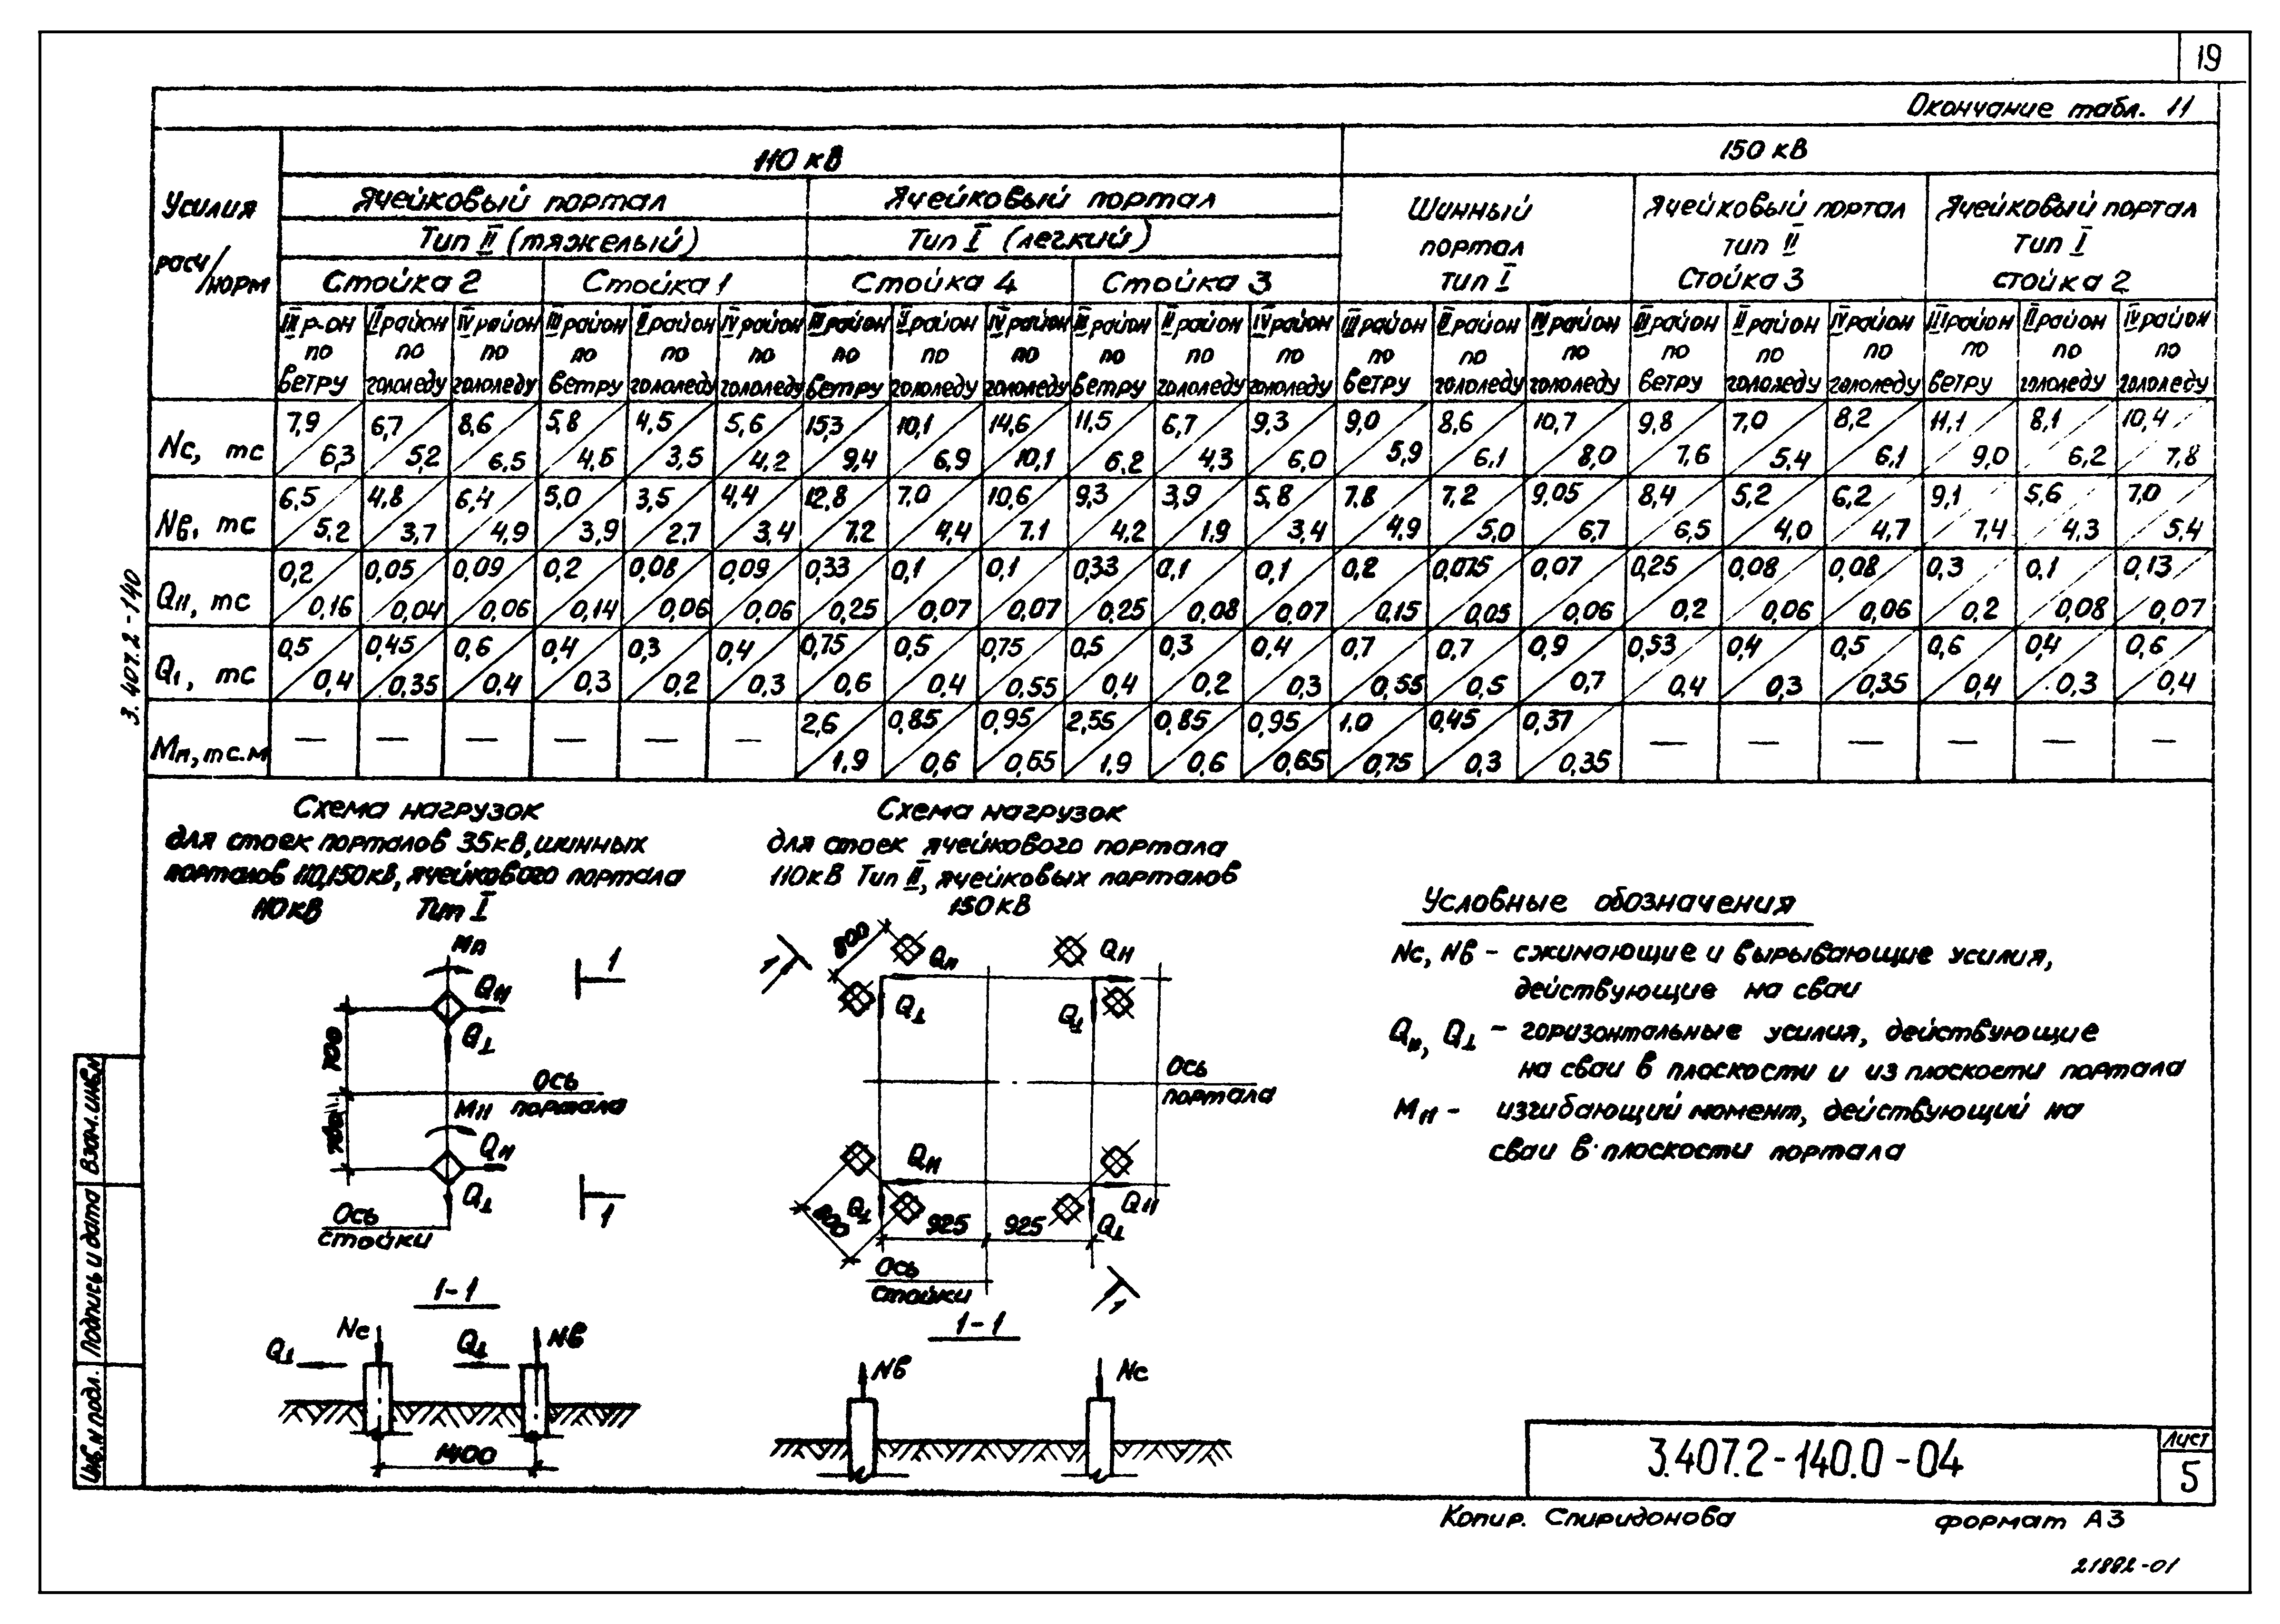 19
Окончание табл. 11
Усилия
расч/норм
110 кВ
150 кВ
Ячейковый портал
Ячейковый портал
Тип II (тяжелый)
Тип I (легкий)
Шинный портал тип I
Ячейковый портал тип II стойка 3
Ячейковый портал тип I стойка 2
Стойка 2
Стойка 1
Стойка 4
Стойка 3
III р-он по ветру
II район по гололеду
IV район по гололеду
III район по ветру
II район по гололеду
IV район по гололеду
III район по ветру
II район по гололеду
IV район по гололеду
III район по ветру
II район по гололеду
IV район по гололеду
III район по ветру
II район по гололеду
IV район по гололеду
III район по ветру
II район по гололеду
IV район по гололеду
III район по ветру
II район по гололеду
IV район по гололеду
Nс, тс 7,9/6,3 6,7/5,2 8,6/6,5 5,8/4,5 4,5/3,5 5,6/4,2 15,3/9,4 10,1/6,9 14,6/10,1 11,5/6,2 6,7/4,3 9,3/6,0 9,0/5,9 8,6/6,1 10,7/8,0 9,8/7,6 7,0/5,4 8,2/6,1 11,1/9,0 8,1/6,2 10,4/7,8
Nв, тс 6,5/5,2 4,8/3,7 6,4/4,9 5,0/3,9 3,5/2,7 4,4/3,4 12,8/7,2 7,0/4,4 10,6/7,1 9,3/4,2 3,9/1,9 5,8/3,4 7,8/4,9 7,2/5,0 9,05/6,7 8,4/6,5 5,2/4,0 6,2/4,7 9,1/7,4 5,6/4,3 7,0/5,4
QII, тс 0,2/0,16 0,05/0,04 0,09/0,06 0,2/0,14 0,08/0,06 0,09/0,06 0,33/0,25 0,1/0,07 0,1/0,07 0,33/0,25 0,1/0,08 0,1/0,07 0,2/0,15 0,075/0,05 0,07/0,06 0,25/0,2 0,08/0,06 0,08/0,06 0,3/0,2 0,1/0,08 0,13/0,07
Q⊥, тс 0,5/0,4 0,45/0,35 0,6/0,4 0,4/0,3 0,3/0,2 0,4/0,3 0,75/0,6 0,5/0,4 0,75/0,55 0,5/0,4 0,3/0,2 0,4/0,3 0,7/0,55 0,7/0,5 0,9/0,7 0,53/0,4 0,4/0,3 0,5/0,35 0,6/0,4 0,4/0,3 0,6/0,4
МII, тс.м — — — — — — 2,6/1,9 0,85/0,6 0,95/0,65 2,55/1,9 0,85/0,6 0,95/0,65 1,0/0,75 0,45/0,3 0,37/0,35 — — — — — —
3.407.2-140
Схема нагрузок
для стоек порталов 35кВ, шинных
порталов 110,150кВ, ячейкового портала
110кВ Тип I
МII
QII
Q⊥
1
700
Ось
портала
МII
QII
700
Q⊥
1
Ось
стойки
1-1
Nс
Q⊥
Q⊥
Nв
1400
Схема нагрузок
для стоек ячейкового портала
110кВ Тип II, ячейковых порталов
150кВ
1
800
QII
QII
Q⊥
Q⊥
Ось
портала
QII
QII
800
Q⊥
925
925
Q⊥
Ось
стойки
1
1-1
Nв
Nс
Условные обозначения
Nс, Nв - сжимающие и вырывающие усилия,
действующие на сваи
QII, Q⊥ - горизонтальные усилия, действующие
на сваи в плоскости и из плоскости портала
МII - изгибающий момент, действующий на
сваи в плоскости портала
Инв.N подл.
Подпись и дата
Взам.инв.N
3.407.2-140.0-04
Лист
5
Копир. Спиридонова
формат А3
21882-01